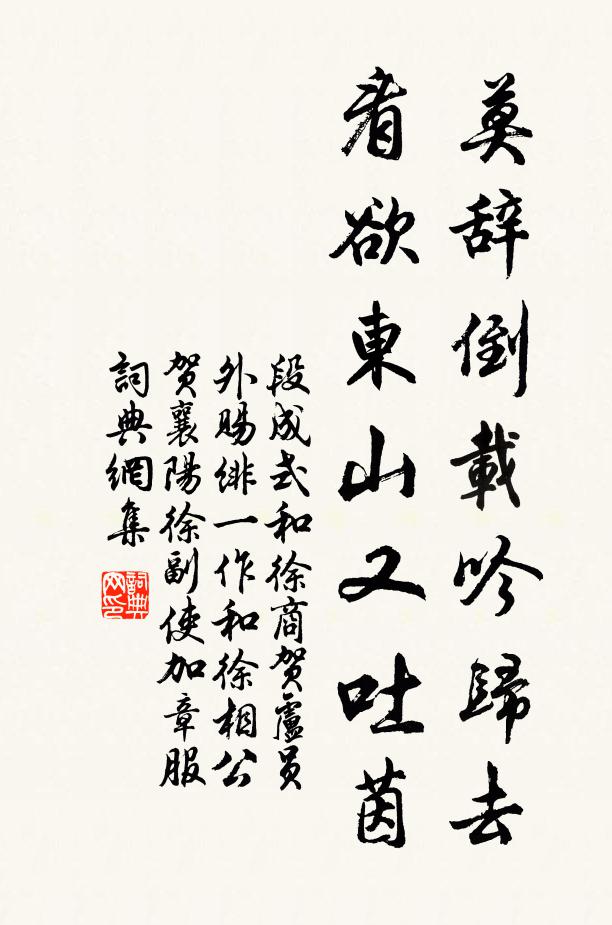 莫辞倒載吟歸去
看欲東山又吐茵
段成式和徐商贺盧員
外賜緋一作和徐相公
贺襄陽徐副使加章服
詞典網集
詞典网印